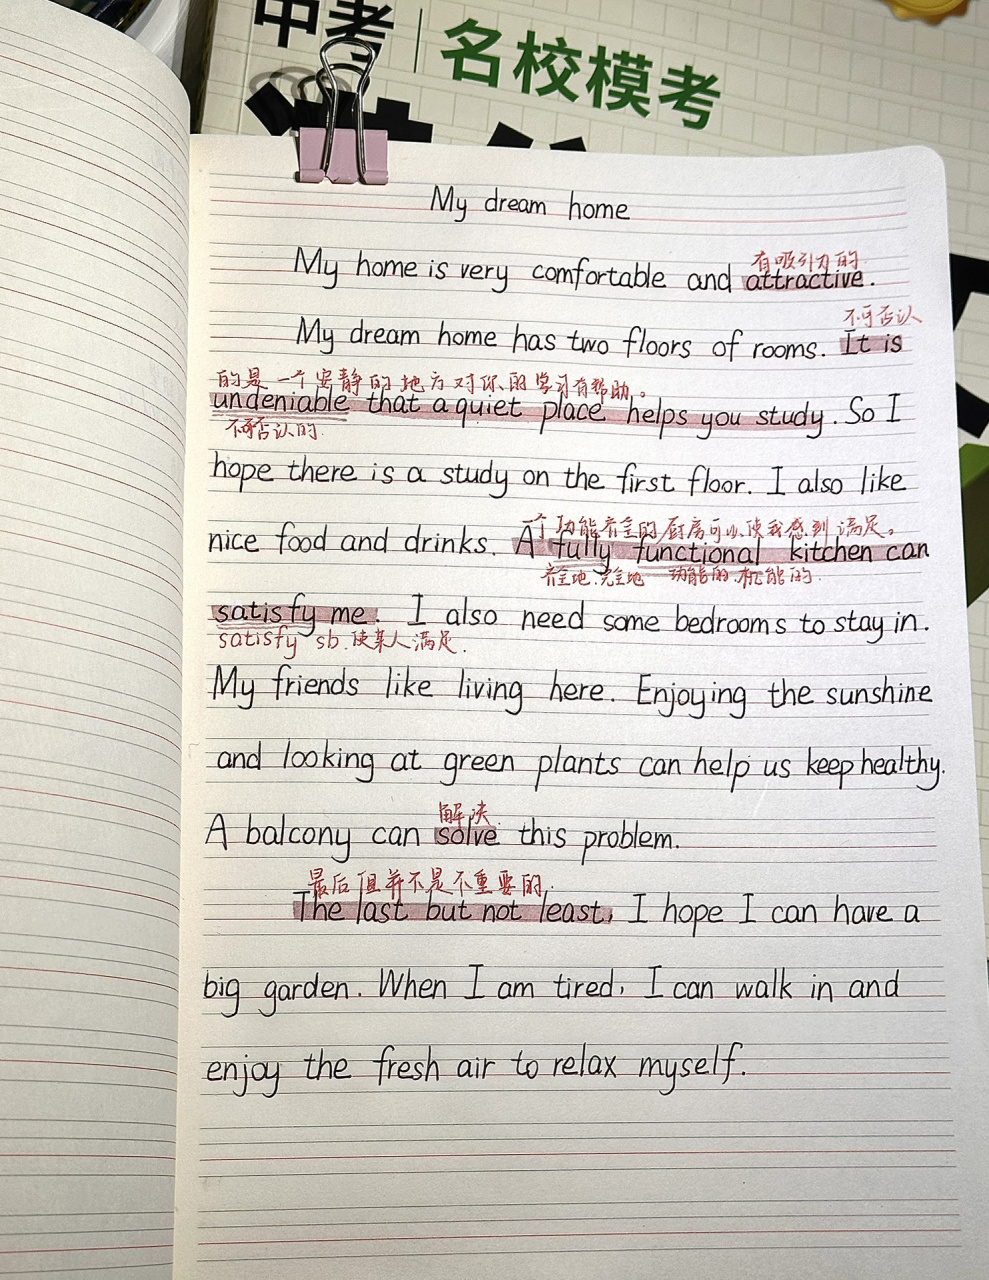 中考 | 名校模考
My dream home
有吸引力的
My home is very comfortable and attractive.
不可否认
My dream home has two floors of rooms. It is
的是一个安静的地方对你的学习有帮助。
undeniable that a quiet place helps you study. So I
不可否认的
hope there is a study on the first floor. I also like
一个功能齐全的厨房可以使我感到满足。
nice food and drinks. A fully functional kitchen can
齐全地.完全地 功能的.机能的
satisfy me. I also need some bedrooms to stay in.
satisfy sb.使某人满足.
My friends like living here. Enjoying the sunshine
and looking at green plants can help us keep healthy.
解决
A balcony can solve this problem.
最后但并不是不重要的,
The last but not least, I hope I can have a
big garden. When I am tired, I can walk in and
enjoy the fresh air to relax myself.